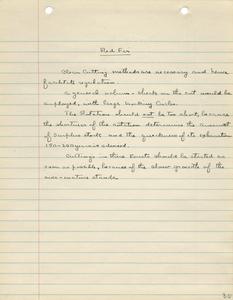 Red Fir
Clear Cutting methods are necessary and hence
facilitate regulation.
A general volume - check in the cut would be
employed, with large Working Circles.
The Rotation should not be too short, because
the shortness of the rotation determines the amount
of surplus stock and the quickness of its
150-200 years is advised.
Cuttings in these Forests should be started as
soon as possible, because of the slow growth of the
over-mature stands.